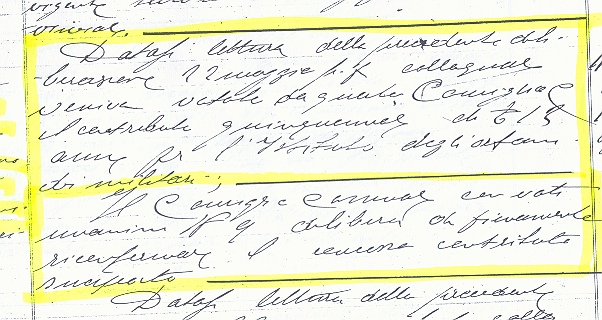 urgente
vinciale.
Datasi lettura della precedente deli-
-berazione 22 maggio p.p. colla quale
veniva votato da questo Consiglio
il contributo quinquennale di £ 15
annue pr l'Istituto degli orfani
di militari;
Il Consiglio Comunale con voti
unanimi N° 9 delibera di pienamente
riconfermare il contributo
suesposto
Datasi lettura della precedente
22